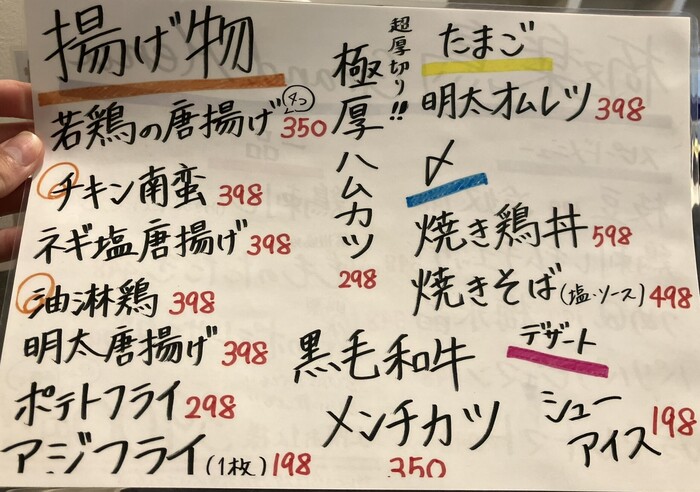 揚げ物
若鶏の唐揚げ(4コ) 350
チキン南蛮 398
ネギ塩唐揚げ 398
油淋鶏 398
明太唐揚げ 398
ポテトフライ 298
アジフライ(1枚) 198
超厚切り!!
極厚ハムカツ
298
黒毛和牛
メンチカツ
350
たまご
明太オムレツ 398
〆
焼き鶏丼 598
焼きそば(塩・ソース) 498
デザート
シュー
アイス 198